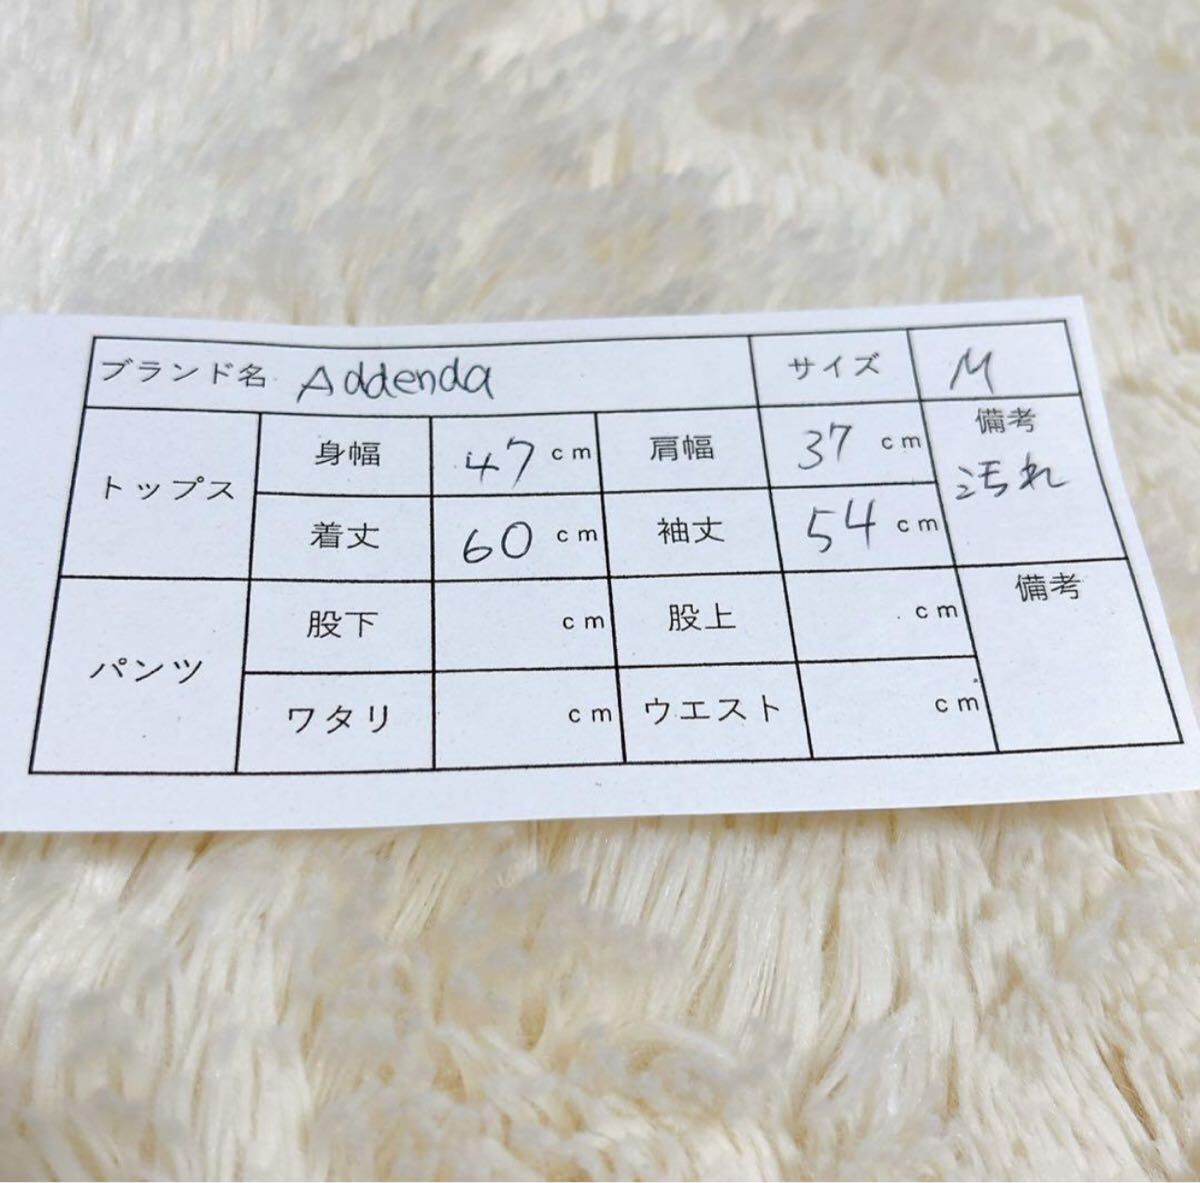 ブランド名 Addenda サイズ M
トップス 身幅 47 cm 肩幅 37 cm 備考
汚れ
着丈 60 cm 袖丈 54 cm
パンツ 股下 cm 股上 cm 備考
ワタリ cm ウエスト cm